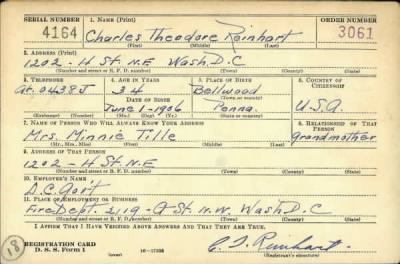 SERIAL NUMBER 1. NAME (Print) ORDER NUMBER
4164 Charles Theodore Reinhart 3061
(First) (Middle) (Last)
2. ADDRESS (Print)
1202 - H St. N.E. Wash D.C
(Number and street or R. F. D. number) (Town) (County) (State)
3. TELEPHONE 4. AGE IN YEARS 5. PLACE OF BIRTH 6. COUNTRY OF CITIZENSHIP
At. 0438J 34 Bellwood
DATE OF BIRTH (Town or county)
June 1-1906 Penna. U.S.A.
(Exchange) (Number) (Mo.) (Day) (Yr.) (State or country)
7. NAME OF PERSON WHO WILL ALWAYS KNOW YOUR ADDRESS 8. RELATIONSHIP OF THAT PERSON
Mrs. Minnie Tille grandmother
(Mr., Mrs., Miss) (First) (Middle) (Last)
9. ADDRESS OF THAT PERSON
1202 - H St. N.E
(Number and street or R. F. D. number) (Town) (County) (State)
10. EMPLOYER'S NAME
D.C. Govt
11. PLACE OF EMPLOYMENT OR BUSINESS
Fire Dept. 2119 - G St. N.W. Wash D.C
(Number and street or R. F. D. number) (Town) (County) (State)
I AFFIRM THAT I HAVE VERIFIED ABOVE ANSWERS AND THAT THEY ARE TRUE.
REGISTRATION CARD
D. S. S. Form 1 (over) C. T. Reinhart
(Registrant's signature)